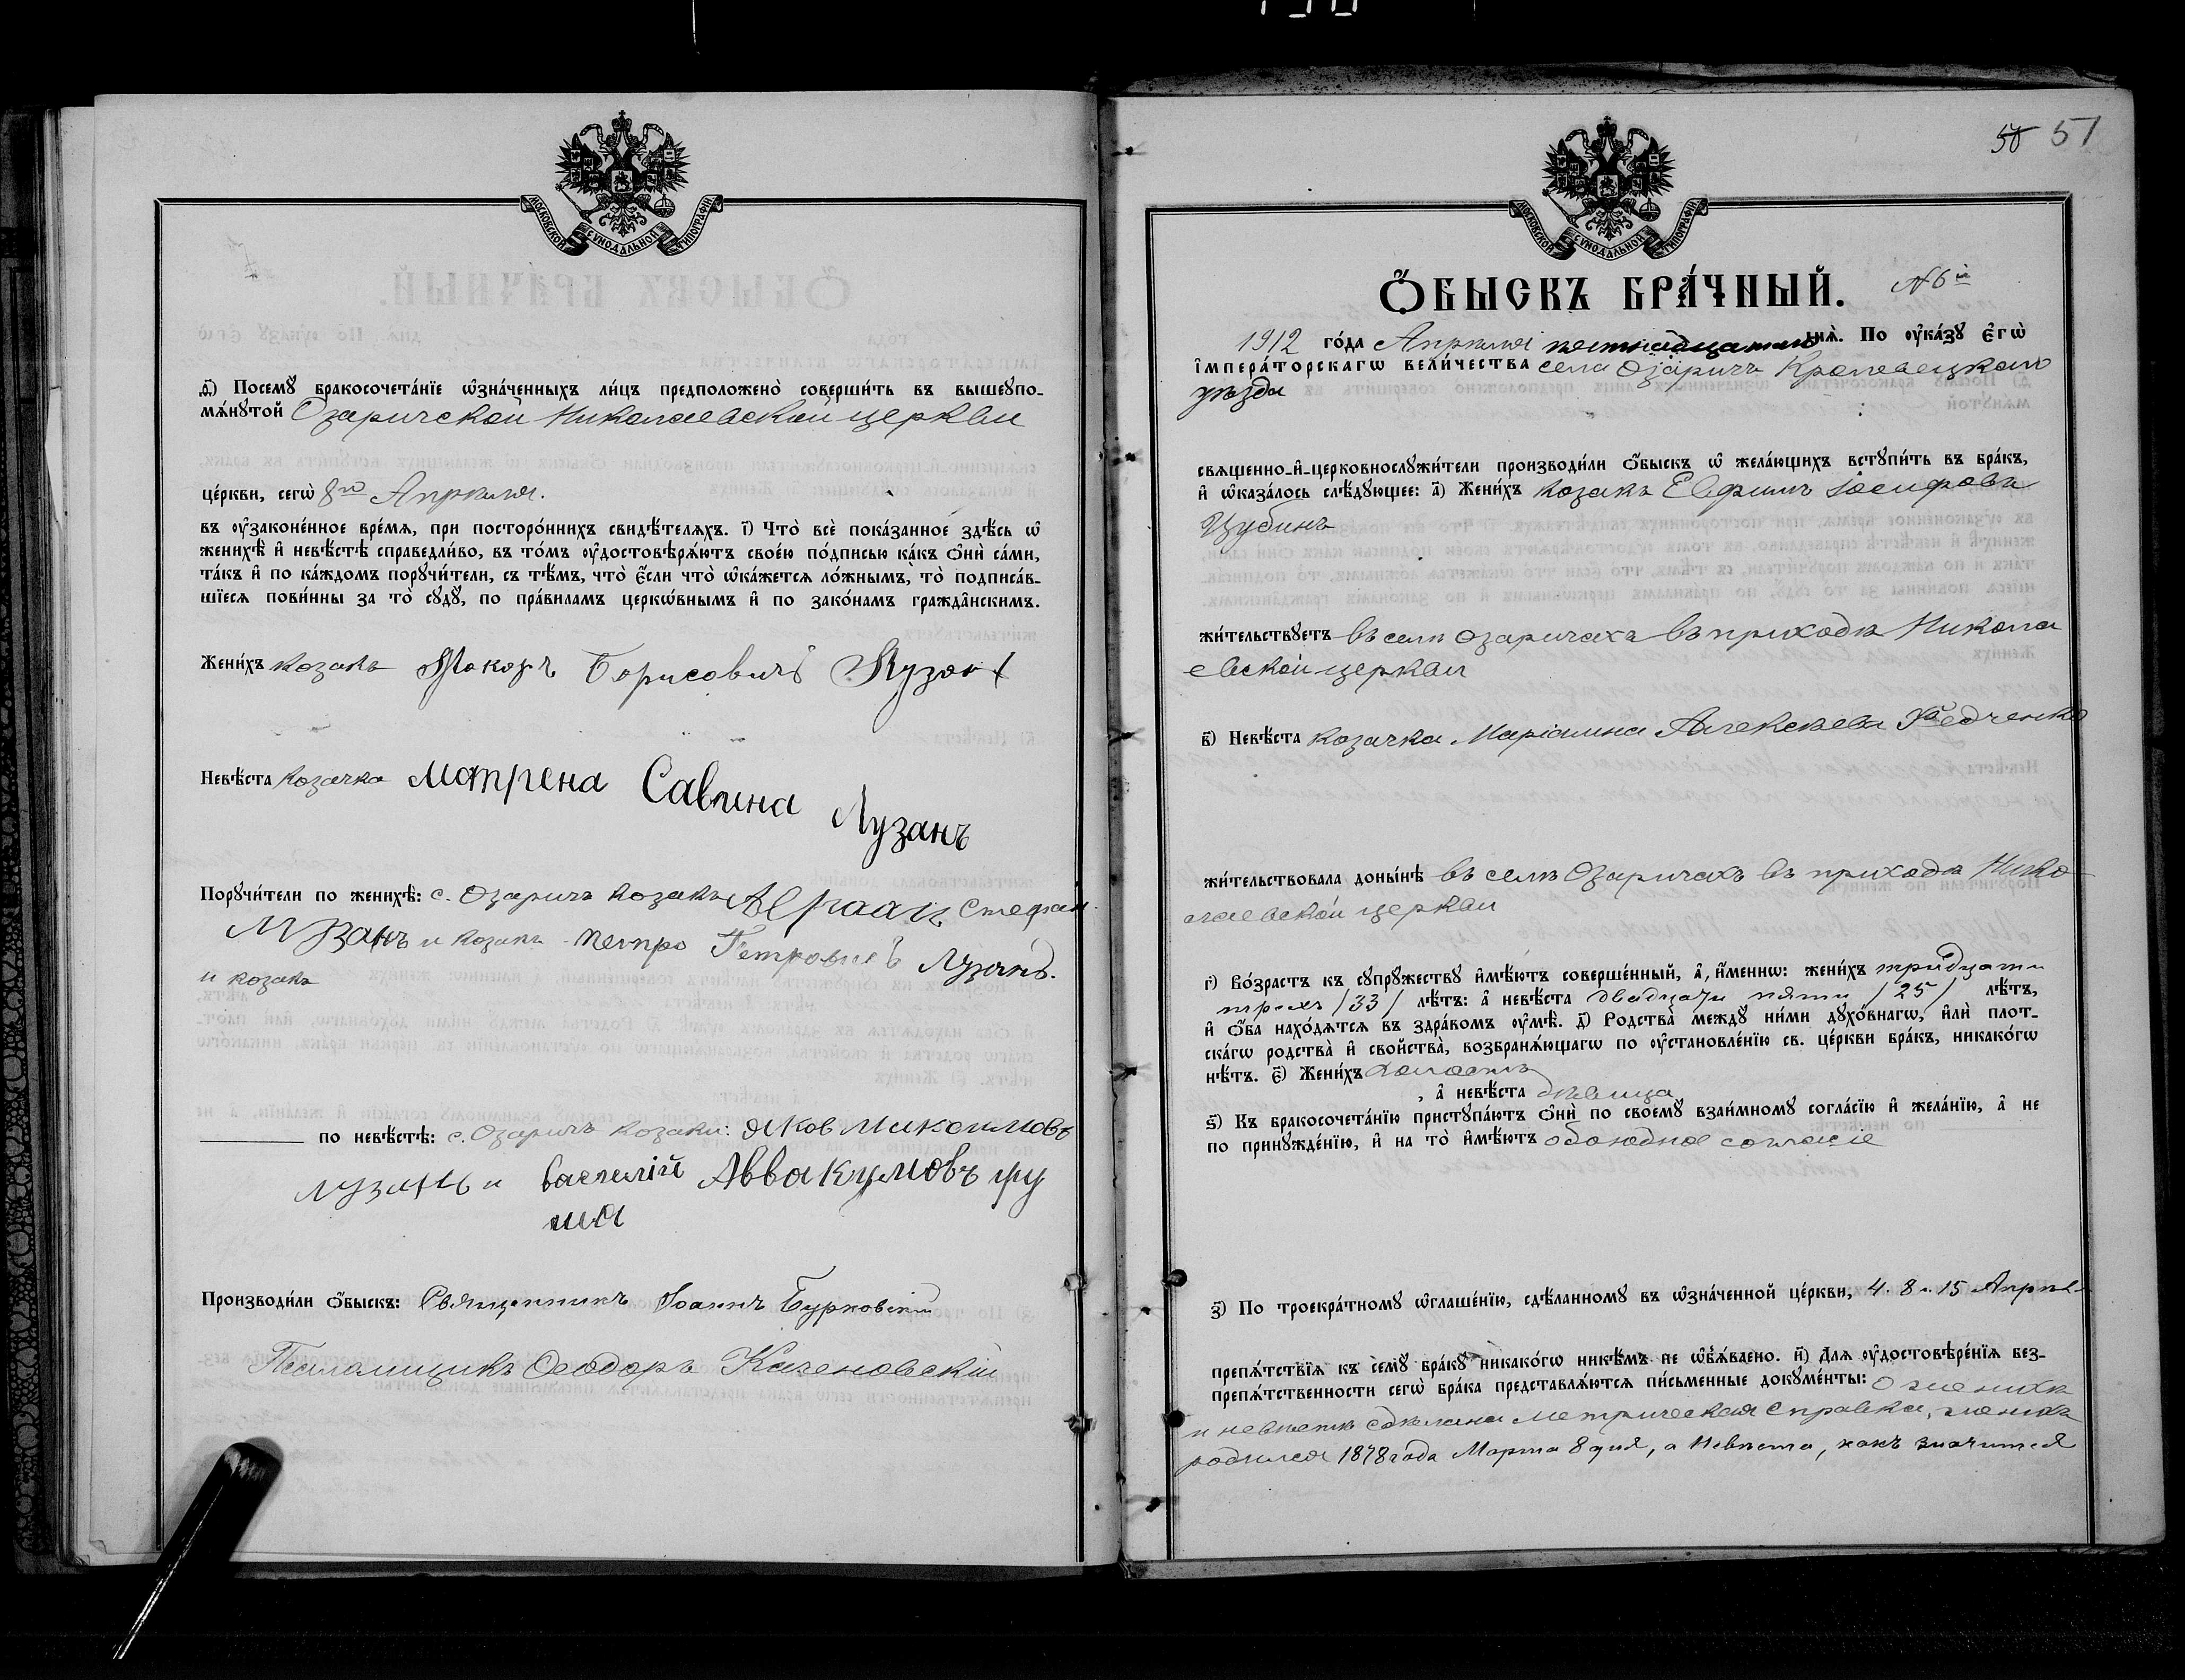 МОСКОВСКОЙ СѴНОДАЛЬНОЙ ТИПОГРАФІИ
ѳ҃) Посемꙋ̀ бракосочета́нїе ѡ҆зна́ченныхъ ли́цъ предположено̀ соверши́ть въ вышеꙋпо-
мѧ́нꙋтой Озаричской Николаевской церкви
це́ркви, сегѡ̀ 8го Апрѣля.
въ ᲂу҆законе́нное вре́мѧ, при посторо́ннихъ свидѣ́телѧхъ. і҃) Что̀ всѐ пока́занное здѣ́сь ѡ҆
женихѣ̀ и҆ невѣ́стѣ справедли́во, въ то́мъ ᲂу҆достовѣрѧ́ютъ свое́ю по́дписью ка́къ ѻ҆нѝ са́ми,
та́къ и҆ по ка́ждомъ порꙋчи́тели, съ тѣ́мъ, что̀ є҆́сли что̀ ѡ҆ка́жетсѧ ло́жнымъ, то̀ подписа́в-
шїесѧ пови́нны за то̀ сꙋдꙋ̀, по пра́виламъ церкѡ́внымъ и҆ по зако́намъ гражда̑нскимъ.
Жени́хъ козакъ Борисовичъ Лузан
Невѣ́ста козачка Матрена Савина
Лузанъ
Порꙋчи́тели по женихѣ̀: с. Озаричъ козакъ Стефан
Лузанъ и козакъ Петро Петровичъ Лузанъ.
и козакъ
по невѣ́стѣ: с. Озаричъ козаки: Яков Максимовъ
Лузанъ и Василій Аввакумовъ
Производи́ли ѻ҆́быскъ: Священникъ Іоаннъ Бурковскій
Псаломщикъ Ѳеодоръ Каченовскій
50 51
МОСКОВСКОЙ СѴНОДАЛЬНОЙ ТИПОГРАФІИ
Ѻ҆́БЫСКЪ БРА́ЧНЫЙ. №6й
1912 го́да Апрѣля пятнадцатаго днѧ̀. По ᲂу҆ка́зꙋ Є҆гѡ̀
І҆мпера́торскагѡ вели́чества села Озаричъ Кролевецкаго
уѣзда
свѧщенно-и҆-церковнослꙋжи́тели производи́ли ѻ҆́быскъ ѡ҆ жела́ющихъ встꙋпи́ть въ бра́къ,
и҆ ѡ҆каза́лось слѣ́дꙋющее: а҃) Жени́хъ козакъ Евфимъ Іосифовъ
Цубинъ
жи́тельствꙋетъ въ селѣ Озаричахъ въ приходѣ Никола
евской церкви
в҃) Невѣ́ста козачка Маріамна Алексѣева Федченко
жи́тельствовала доны́нѣ въ селѣ Озаричахъ въ приходѣ Нико-
лаевской церкви
г҃) Во́зрастъ къ сꙋпрꙋ́жествꙋ и҆мѣ́ютъ соверше́нный, а҆, и҆́меннѡ: жени́хъ тридцати
трехъ /33/ лѣ́тъ: а҆ невѣ́ста двадцати пяти /25/ лѣ́тъ,
и҆ ѻ҆́ба нахо́дѧтсѧ въ здра́вомъ ᲂу҆мѣ̀. д҃) Родства̀ междꙋ̀ ни́ми дꙋхо́внагѡ, и҆лѝ плот-
ска́гѡ родства̀ и҆ свойства̀, возбранѧ́ющагѡ по ᲂу҆становле́нїю св. це́ркви бра́къ, никако́гѡ
нѣ́тъ. є҃) Жени́хъ холостъ
, а҆ невѣ́ста дѣвица
ѕ҃) Къ бракосочета́нїю пристꙋпа́ютъ ѻ҆нѝ по своемꙋ̀ взаи́мномꙋ согла́сїю и҆ жела́нїю, а҆ не
по принꙋжде́нїю, и҆ на то̀ и҆мѣ́ютъ обоюдное согласіе
з҃) По троекра́тномꙋ ѡ҆глаше́нїю, сдѣ́ланномꙋ въ ѡ҆зна́ченной це́ркви, 4. 8 и 15 Апрѣл
препѧ́тствїѧ къ семꙋ̀ бра́кꙋ никако́гѡ никѣ́мъ не ѡ҆б̾ѧ́влено. и҃) Длѧ ᲂу҆достовѣре́нїѧ без-
препѧ́тственности сегѡ̀ бра́ка представлѧ́ютсѧ пи́сьменные докꙋме́нты: О женихѣ
и невѣстѣ сдѣлана метрическая справка, женихъ
родился 1878 года Марта 8 дня, а Невѣста, какъ значится